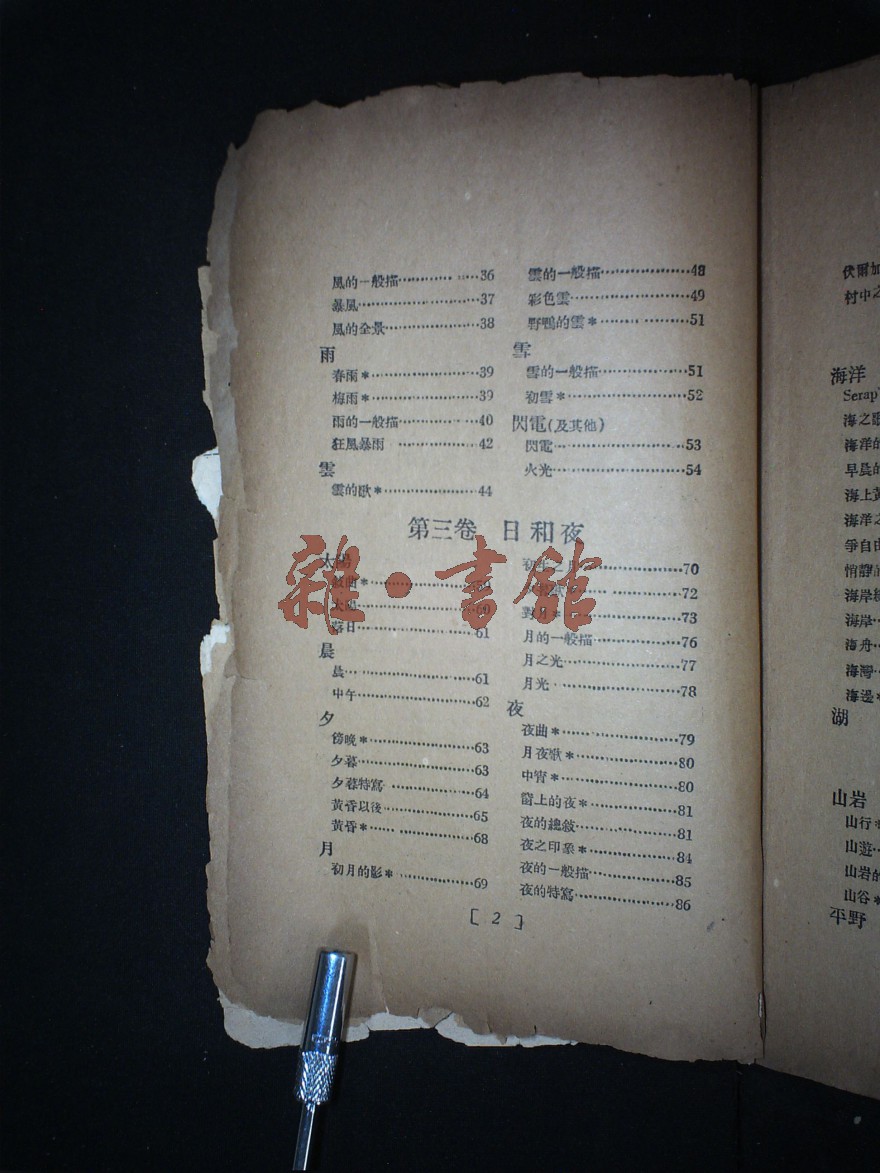 風的一般描…………………36
暴風…………………37
風的全景…………………38
雨
春雨*…………………39
梅雨*…………………39
雨的一般描…………………40
狂風暴雨…………………42
雲
雲的歌*…………………44
雲的一般描…………………48
彩色雲…………………49
野鴨的雲*…………………51
雪
雪的一般描…………………51
初雪*…………………52
閃電(及其他)
閃電…………………53
火光…………………54
第三卷 日和夜
太陽
太陽…………………60
落日…………………61
晨
晨…………………61
中午…………………62
夕
傍晚*…………………63
夕暮…………………63
夕暮特寫…………………64
黃昏以後…………………65
黃昏*…………………68
月
初月的影*…………………69
70
72
對月*…………………73
月的一般描…………………76
月之光…………………77
月光…………………78
夜
夜曲*…………………79
月夜歌*…………………80
中宵*…………………80
窗上的夜*…………………81
夜的總敘…………………81
夜之印象*…………………84
夜的一般描…………………85
夜的特寫…………………86
[ 2 ]
雜·書館
伏爾加
村中之
海洋
Serap
海之歌
海洋的
早晨的
海上黃
海洋之
爭自由
悄靜的
海岸
海岸…
海舟…
海灣…
海邊*
湖
山岩
山行*
山遊…
山岩的
山谷*
平野